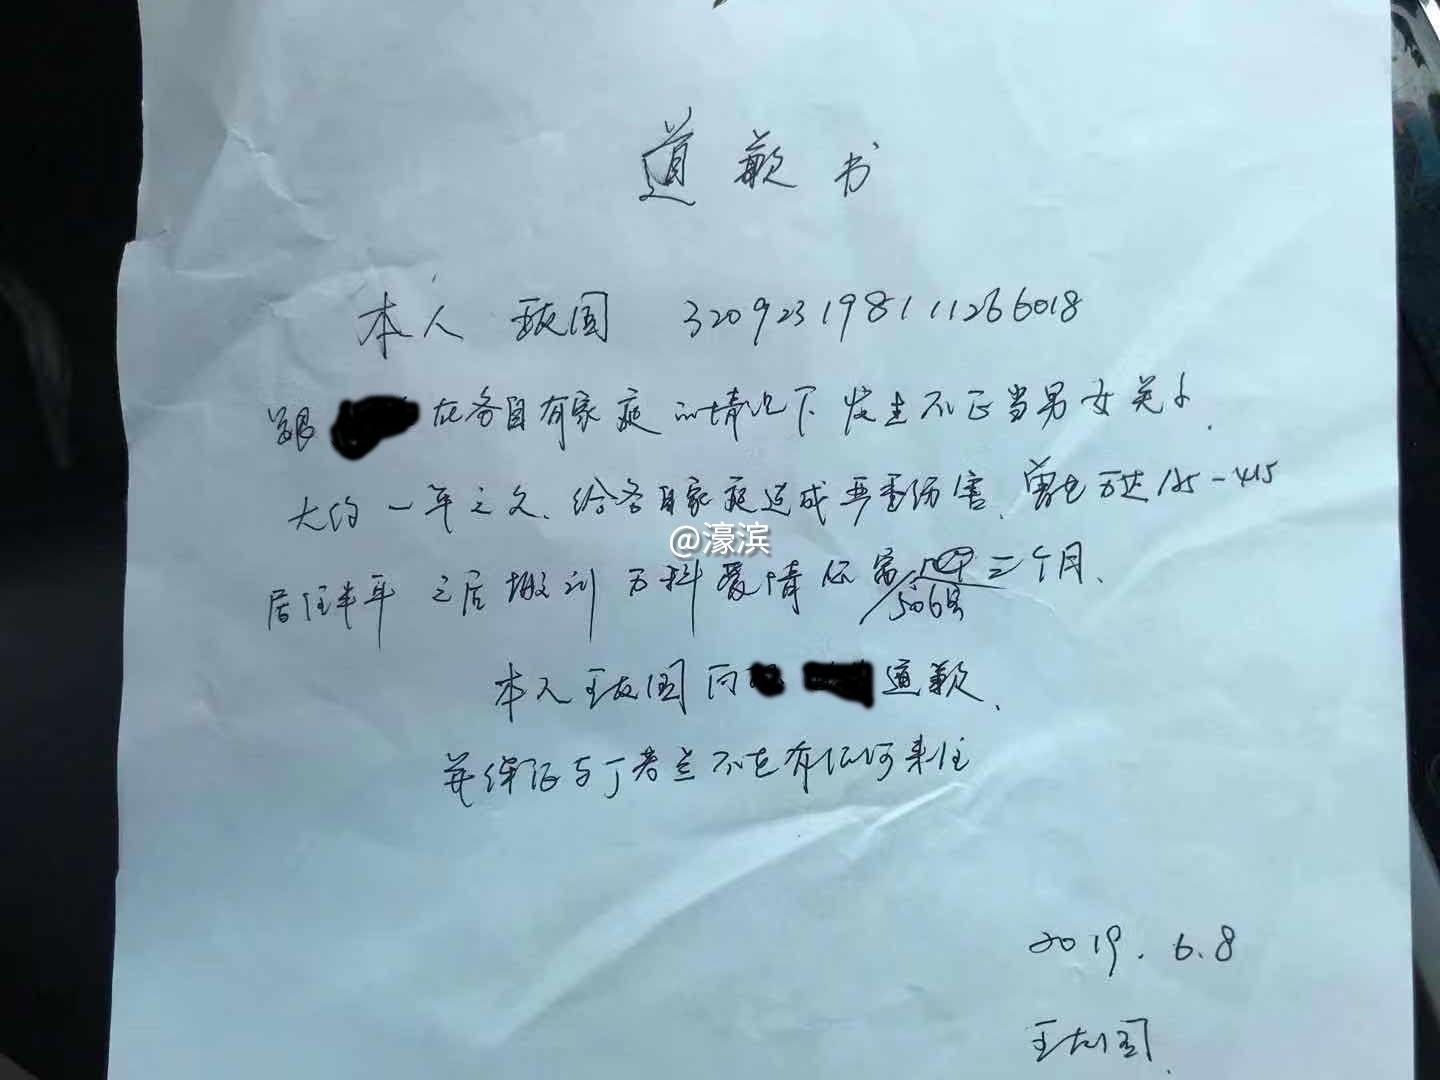 道歉书
本人 王友国 320923198111266018
跟 在各自有家庭的情况下 发生不正当男女关系.
大约一年之久、给各自家庭造成严重伤害、万达 125-415
@濠滨
居住半年 之后搬到 万科爱情 三个月、
506号
本人王友国向 道歉、
并保证与丁 兰不在有任何来往
2019.6.8
王友国.